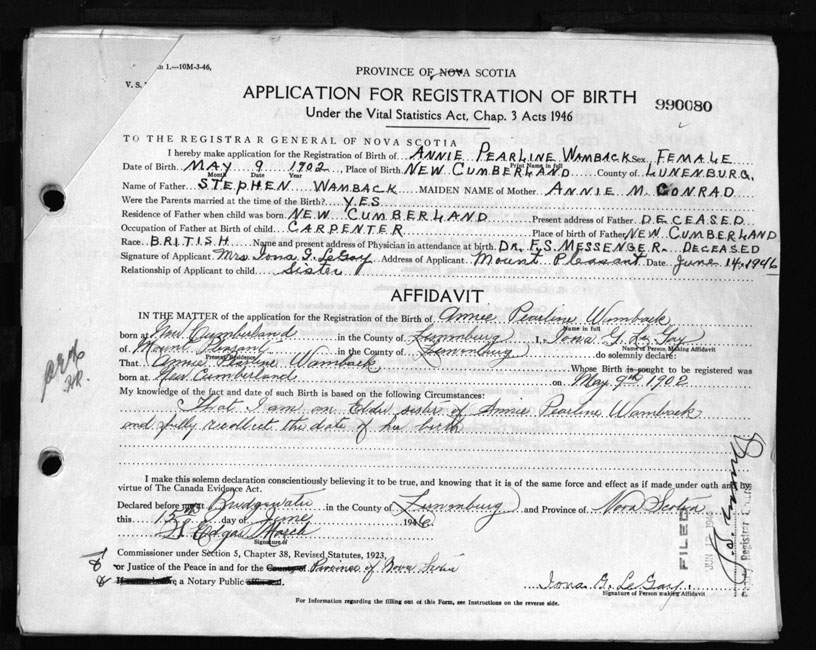 1.—10M-3-46,
V. S.
PROVINCE OF NOVA SCOTIA
APPLICATION FOR REGISTRATION OF BIRTH
990680
Under the Vital Statistics Act, Chap. 3 Acts 1946
TO THE REGISTRAR GENERAL OF NOVA SCOTIA
I hereby make application for the Registration of Birth of ANNIE PEARLINE WAMBACK Sex FEMALE
Print Name in full
Date of Birth MAY 9 1902 Place of Birth NEW CUMBERLAND County of LUNENBURG.
Month Date Year
Name of Father STEPHEN WAMBACK MAIDEN NAME of Mother ANNIE M. CONRAD
Were the Parents married at the time of the Birth? YES
Residence of Father when child was born NEW CUMBERLAND Present address of Father DECEASED
Occupation of Father at Birth of child CARPENTER Place of birth of Father NEW CUMBERLAND
Race BRITISH Name and present address of Physician in attendance at birth DR. F.S. MESSENGER. DECEASED
Signature of Applicant Mrs. Iona G. LeGay Address of Applicant Mount Pleasant Date June 14, 1946
Relationship of Applicant to child Sister
AFFIDAVIT
IN THE MATTER of the application for the Registration of the Birth of Annie Pearline Wamback
Name in full
born at New Cumberland in the County of Lunenburg I, Iona G. Le Gay
Name of Person Making Affidavit
of Mount Pleasant in the County of Lunenburg do solemnly declare:
Present Residence
That Annie Pearline Wamback Whose Birth is sought to be registered was
born at New Cumberland on May 9th 1902
My knowledge of the fact and date of such Birth is based on the following Circumstances:
That I am an Elder sister of Annie Pearline Wamback
and fully recollect the date of her birth
I make this solemn declaration conscientiously believing it to be true, and knowing that it is of the same force and effect as if made under oath and by
virtue of The Canada Evidence Act.
Declared before me at Bridgewater in the County of Lunenburg and Province of Nova Scotia
this 15th day of June 1946
Edgar March
Signature of
Commissioner under Section 5, Chapter 38, Revised Statutes, 1923,
or Justice of the Peace in and for the County of Province of Nova Scotia
a Notary Public
Iona G. LeGay
Signature of Person making Affidavit
For Information regarding the filling out of this Form, see Instructions on the reverse side.
FILED
JUN